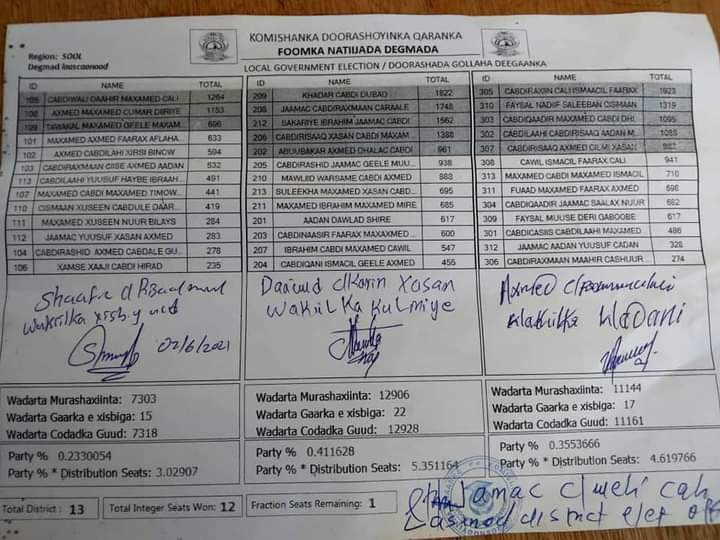 KOMISHANKA DOORASHOYINKA QARANKA
FOOMKA NATIIJADA DEGMADA
Region: SOOL
Degmad laascaanood
LOCAL GOVERNMENT ELECTION / DOORASHADA GOLLAHA DEEGAANKA
ID NAME TOTAL
105 CABDIWALI DAAHIR MAXAMED CALI 1264
108 AXMED MAXAMED CUMAR DIRIYE 1153
109 TAWAKAL MAXAMED GEELE MAXAM... 696
101 MAXAMED AXMED FAARAX AFLAHA... 633
102 AXMED CABDILAHI XIRSI BINOW 594
103 CABDIRAXMAAN CISE AXMED AADAN 532
113 CABDILAAHI YUUSUF HAYBE IBRAAH... 491
107 MAXAMED CABDI MAXAMED TIMOW... 441
110 CISMAAN XUSEEN CABDULE DAAR... 419
111 MAXAMED XUSEEN NUUR BILAYS 284
112 JAAMAC YUUSUF XASAN AXMED 283
104 CABDIRASHID AXMED CABDALE GU... 278
106 XAMSE XAAJI CABDI HIRAD 235
ID NAME TOTAL
209 KHADAR CABDI DUBAD 1822
208 JAAMAC CABDIRAXMAAN CARAALE 1748
212 SAKARIYE IBRAHIM JAAMAC CABDI 1562
206 CABDIRISAAQ XASAN CABDI MAXAM... 1388
202 ABUUBAKAR AXMED DHALAC CABDI 961
205 CABDIRASHID JAAMAC GEELE MUU... 938
210 MAWLIID WARSAME CABDI AXMED 888
213 SULEEKHA MAXAMED XASAN CABD... 695
211 MAXAMED IBRAHIM MAXAMED MIRE 685
201 AADAN DAWLAD SHIRE 617
203 CABDINAASIR FAARAX MAXAXMED... 600
207 IBRAHIM CABDI MAXAMED CAWIL 547
204 CABDIQANI ISMACIL GEELE AXMED 455
ID NAME TOTAL
305 CABDIRAXIIN CALI ISMACIIL FAARAX 1923
310 FAYSAL NADIIF SALEEBAN CISMAAN 1319
303 MAXAMED CABDIQAADIR CABDI DHI... 1095
302 CABDILAAHI CABDIRISAAQ AADAN M... 1085
307 CABDIRISAAQ AXMED GILMI XASAN 982
308 CAWIL ISMACIIL FAARAX CALI 941
313 MAXAMED CABDI MAXAMED ISMACIL 710
311 FUAAD MAXAMED FAARAX AXMED 698
304 CABDIQAADIR JAAMAC SAALAX NUUR 682
309 FAYSAL MUUSE DERI GABOOBE 617
301 CABDICASIIS CABDILAAHI MAXAMED 486
312 JAAMAC AADAN YUUSUF CADAN 328
306 CABDIRAXMAAN MAAHIR CASHUUR... 274
02/6/2021
Daauud
Xasan
Wakiilka Kulmiye
Axmed
Wakiilka Wadani
Wadarta Murashaxiinta: 7303
Wadarta Gaarka e xisbiga: 15
Wadarta Codadka Guud: 7318
Party % 0.2330054
Party % * Distribution Seats: 3.02907
Wadarta Murashaxiinta: 12906
Wadarta Gaarka e xisbiga: 22
Wadarta Codadka Guud: 12928
Party % 0.411628
Party % * Distribution Seats: 5.351164
Wadarta Murashaxiinta: 11144
Wadarta Gaarka e xisbiga: 17
Wadarta Codadka Guud: 11161
Party % 0.3553666
Party % * Distribution Seats: 4.619766
Total District : 13
Total Integer Seats Won: 12
Fraction Seats Remaining: 1
Jamac
district